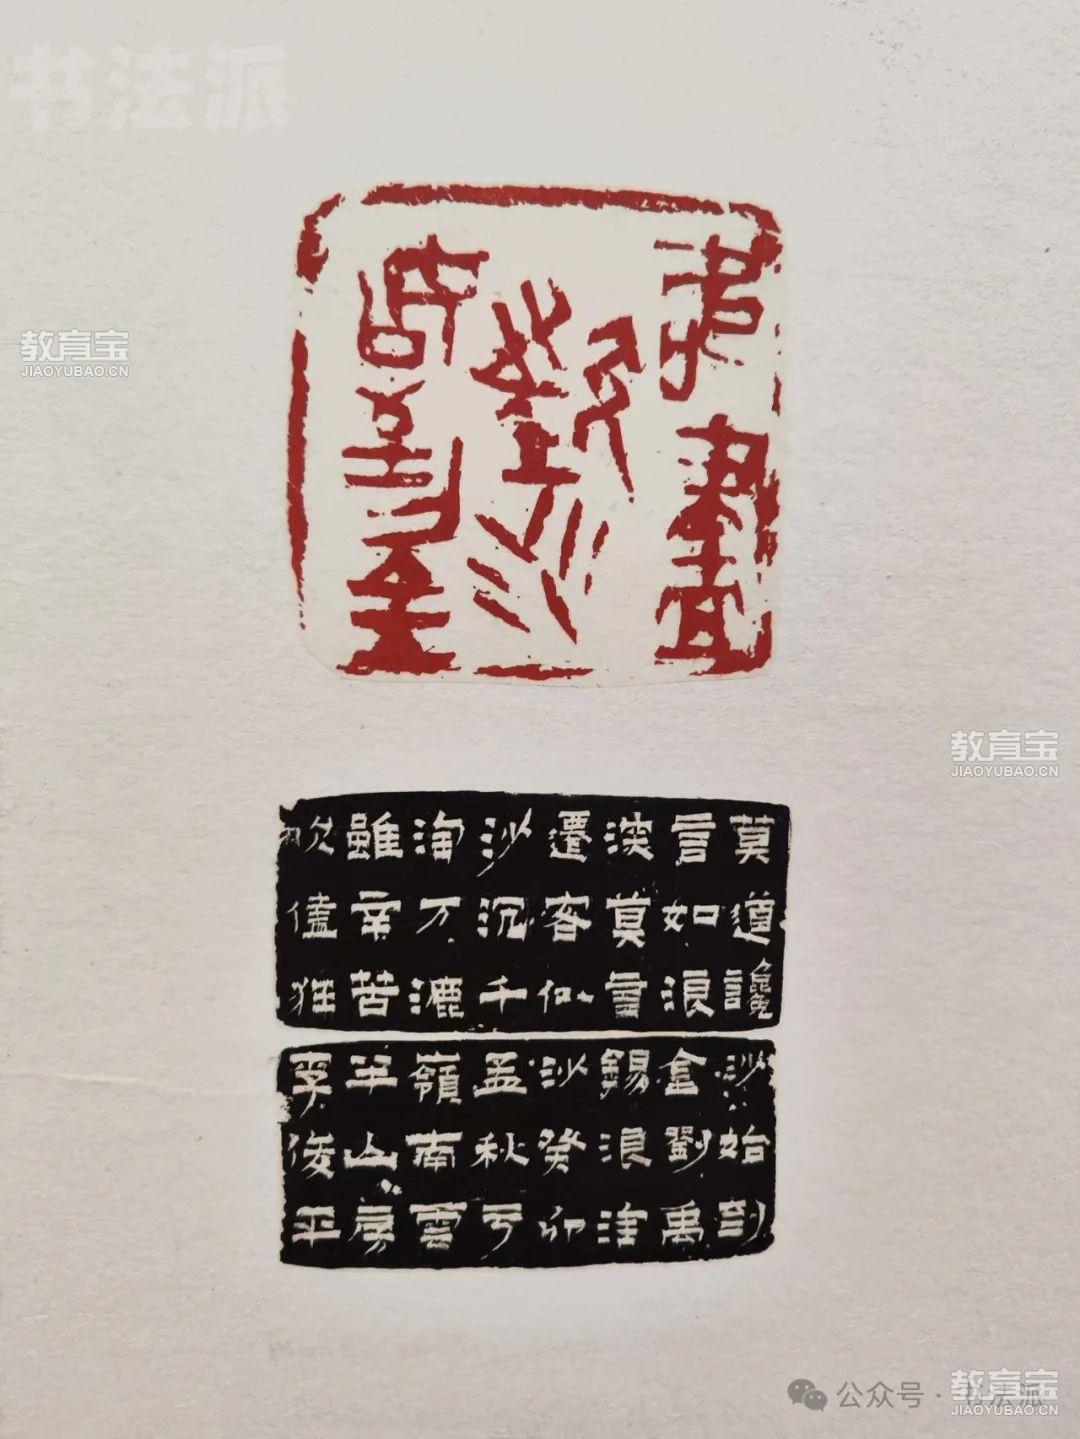 书法派
吹盡
狂沙
始到金
教育宝
JIAOYUBAO.CN
教育宝
JIAOYUBAO.CN
莫道讒
言如浪
深莫言
遷客似
沙沉千
淘万漉
雖辛苦
吹儘狂
沙始到
金劉禹
錫浪淘
沙癸卯
孟秋于
嶺南雲
半山房
李俊平
公众号 · 书法派
教育宝
JIAOYUBAO.CN